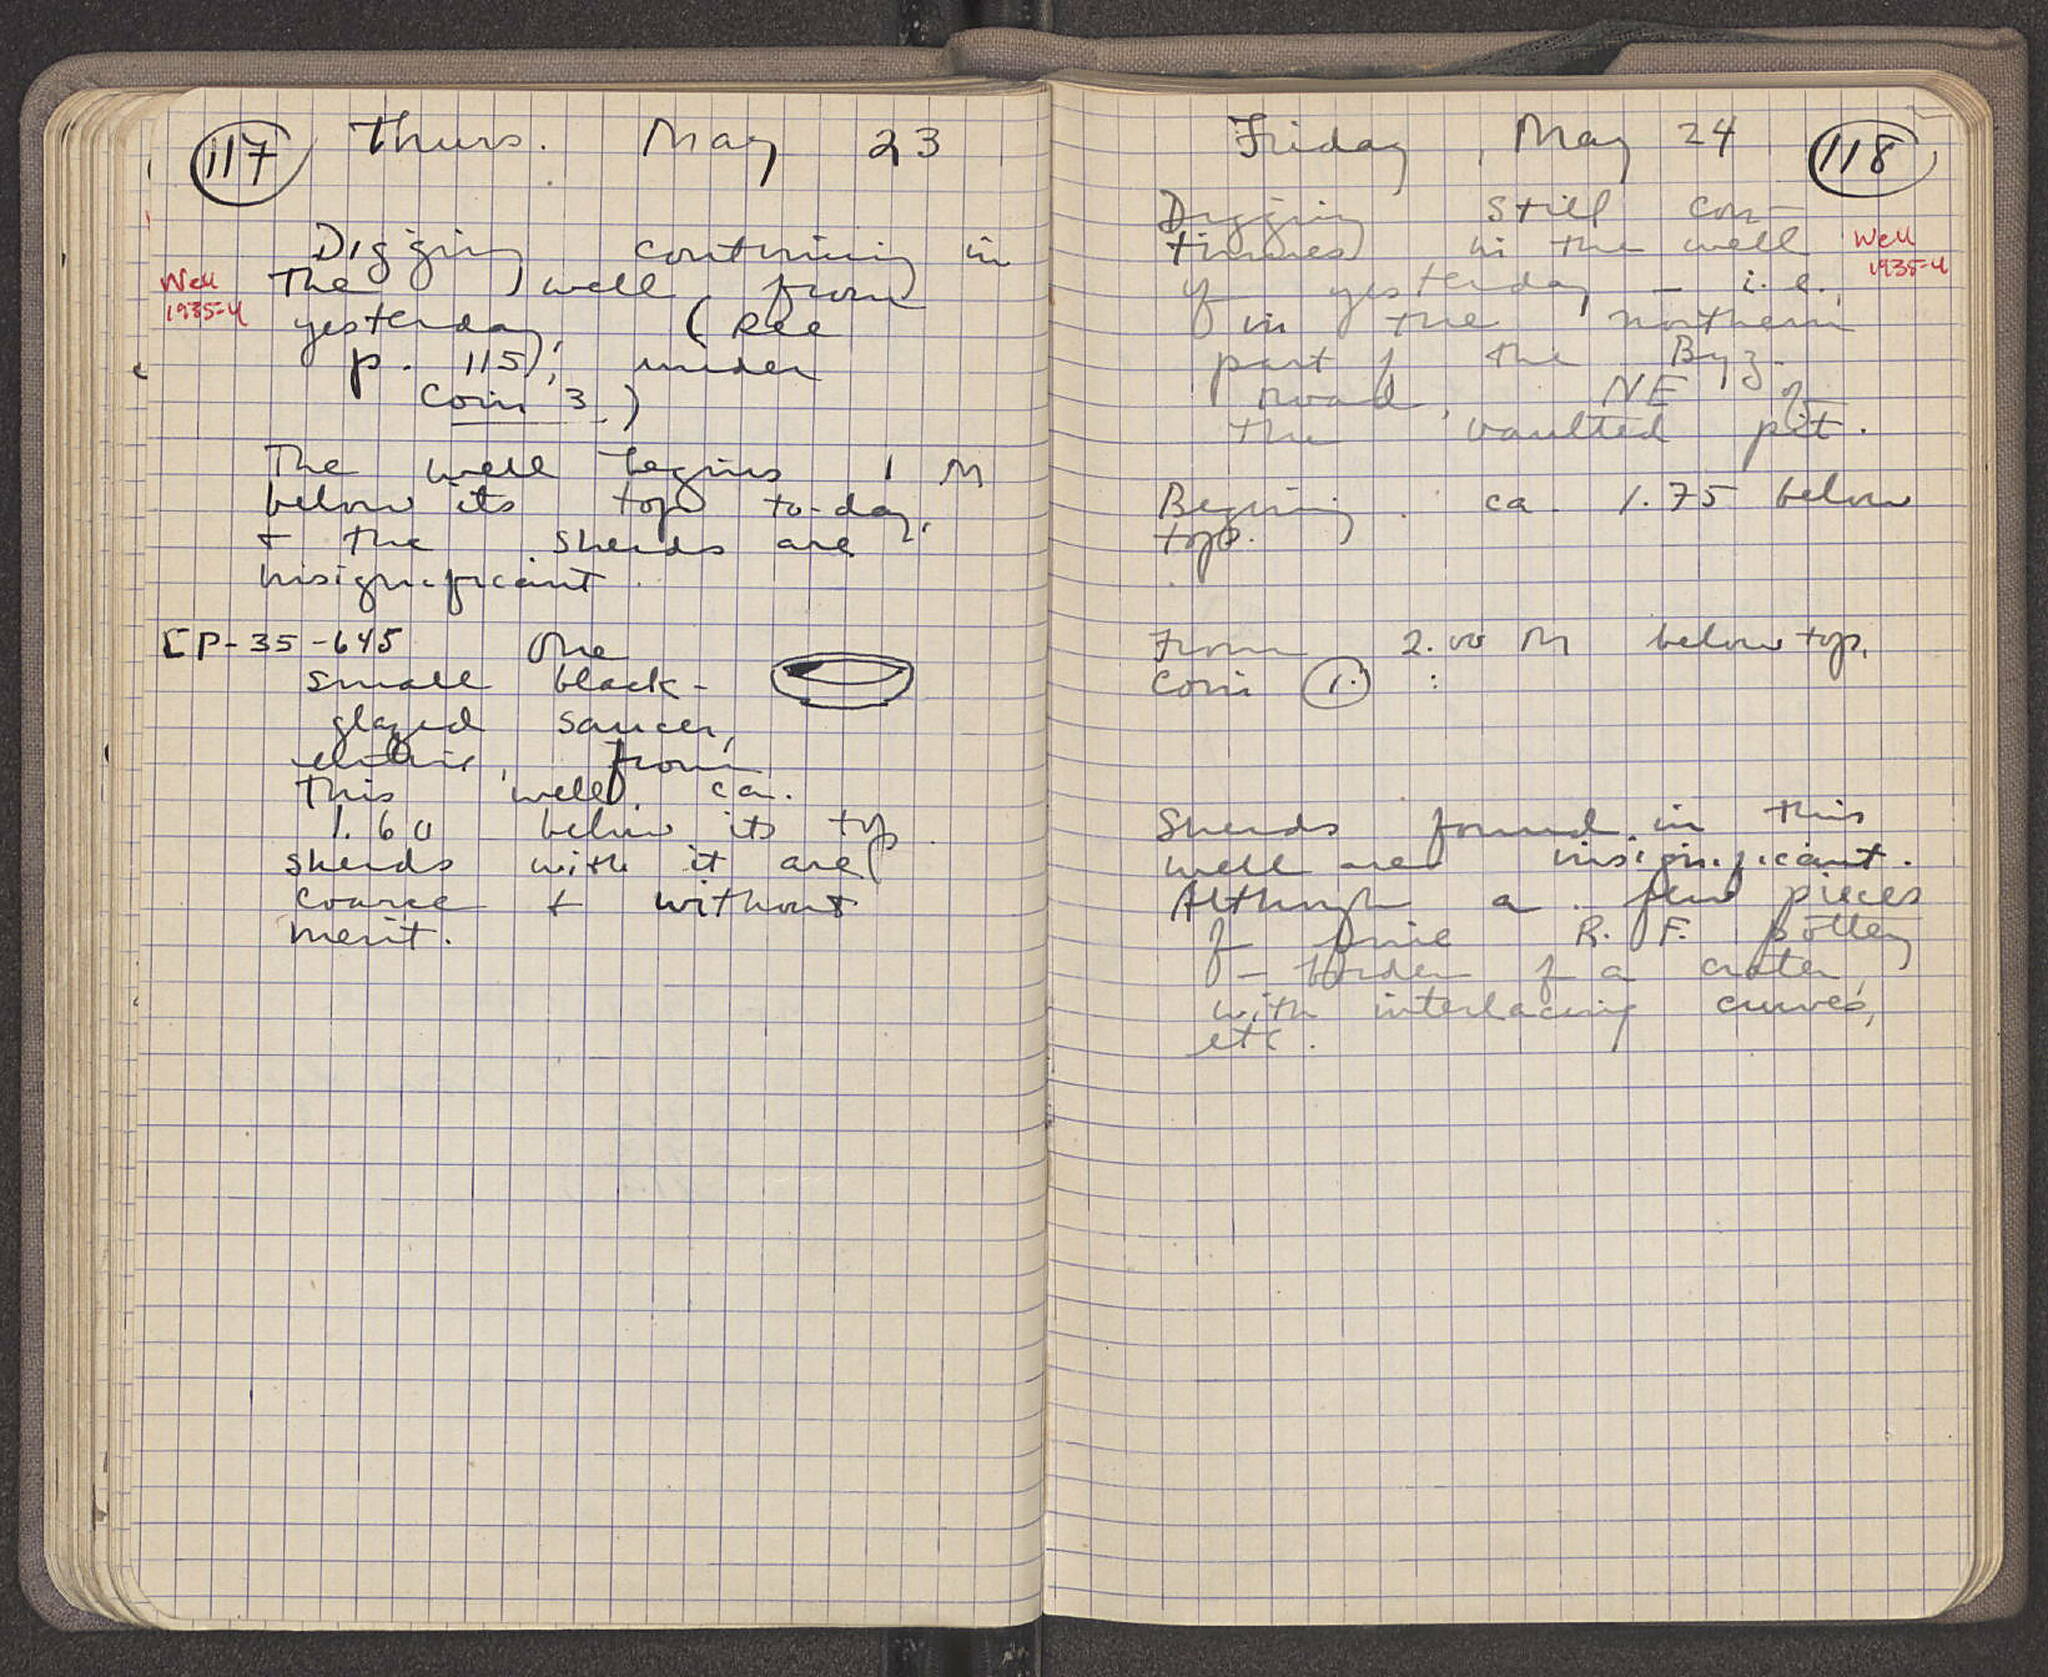 117 Thurs. May 23
Digging continuing in
Well
1935-4
the well from
yesterday, (see
p. 115), under
Coin 3.)
The well begins 1 M
below its top to-day,
& the sherds are
insignificant.
CP-35-645 One
small black-
glazed saucer,
entire, from
this well, ca.
1.60 below its top.
Sherds with it are
coarse & without
merit.
Friday, May 24 118
Digging still con-
tinues in the well
Well
1935-4
of yesterday - i.e.,
in the northern
part of the Byz.
road, NE of
the vaulted pit.
Beginning ca. 1.75 below
top.
From 2.00 M below top,
Coin 1. :
Sherds found in this
well are insignificant.
Although a few pieces
of fine R. F. pottery
- border of a crater,
with interlacing curves,
etc.